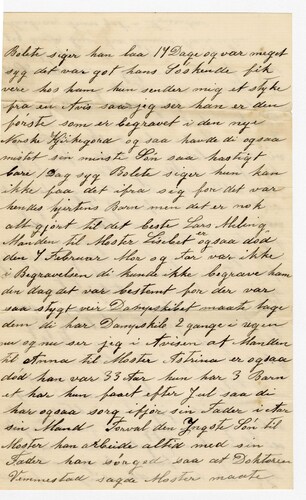 Bolete siger han laa 14 Dage og var meget
syg det var got hans Söskende fik
vere hos ham hun sender mig et styke
fra en Avis saa jeg ser han er den
förste som er begravet i den nye
Norske Kirkegord og saa havde di ogsaa
mistet sin minste Sön saa hastigt
bare 1 Dag syg Bolete siger hun kan
ikke faa det ifra sig for det var
hendes hjertens Barn men det er nok
alt gjort til det beste Lars Meling
Manden til Moster Lisebet er ogsaa död
den 7 Februar Mor og Far var ikke
i Begravelsen di kunde ikke begrave ham
den dag det var bestemt for der var
saa stygt veir Dampskibet maate tage
dem di har Dampskib 2 gange i ugen
nu og nu ser jeg i Avisen at Manden
til Anna til Moster is ogsaa
död han var 33 Aar hun har 3 Barn
et har hun faaet efter Jul saa di
har ogsaa sorg for sin Fader i Aar
sin Mand den Yngste Sön til
Moster han arbeide altid med sin
Fader han saa at Doktoren
sagde Moster maate